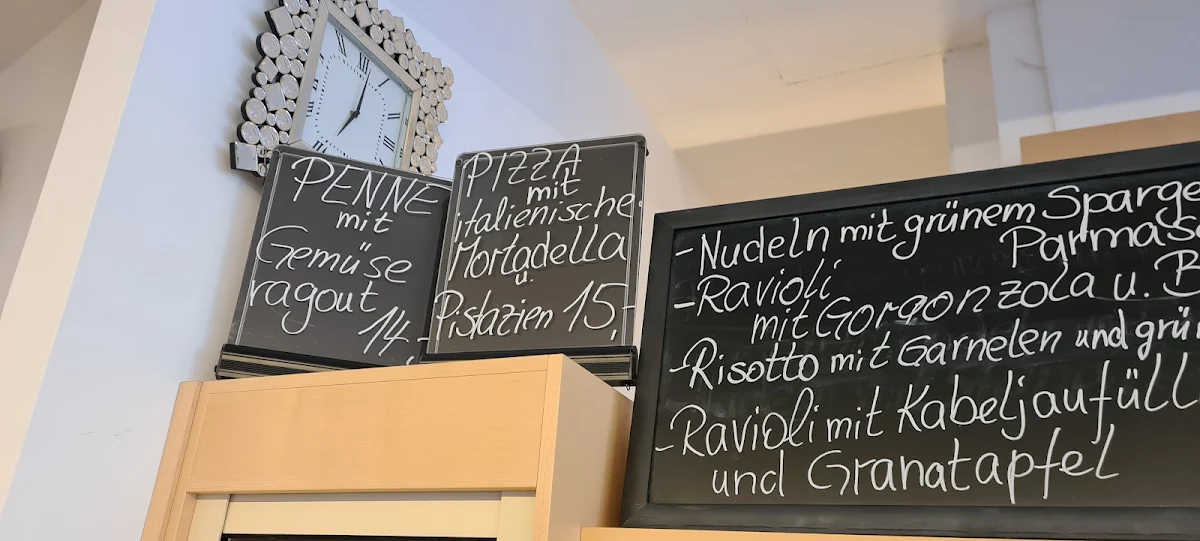 PENNE
mit
Gemüse
ragout
14,-
PIZZA
mit
italienische
Mortadella
u.
Pistazien 15,-
- Nudeln mit grünem Sparge
Parmas
- Ravioli
mit Gorgonzola u. B
- Risotto mit Garnelen und grü
- Ravioli mit Kabeljaufüll
und Granatapfel